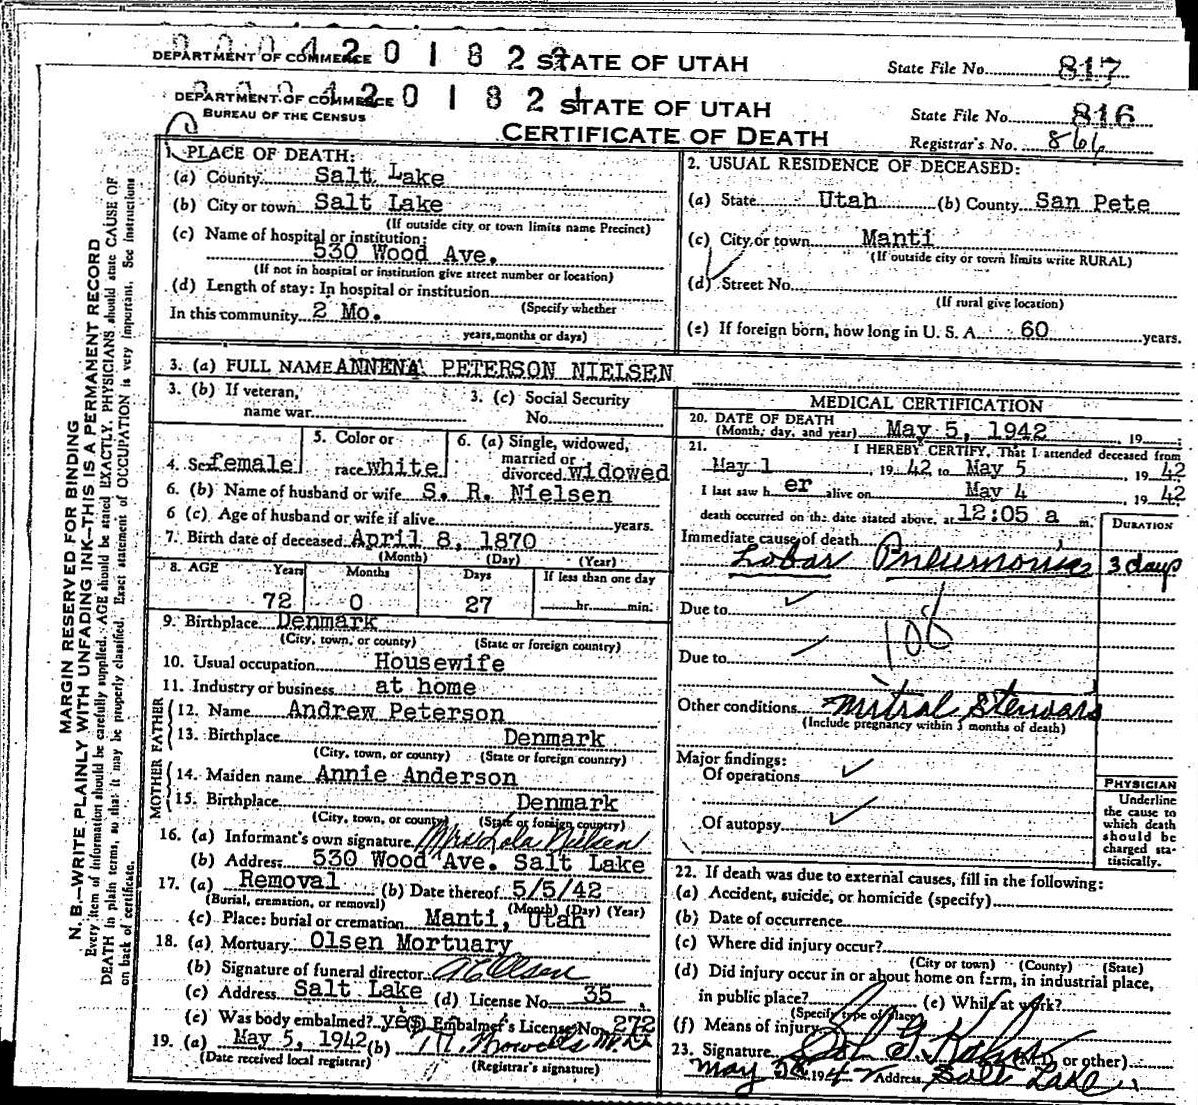 DEPARTMENT OF COMMERCE STATE OF UTAH State File No. 817
DEPARTMENT OF COMMERCE STATE OF UTAH State File No. 816
BUREAU OF THE CENSUS CERTIFICATE OF DEATH Registrar's No. 866
MARGIN RESERVED FOR BINDING
N. B.—WRITE PLAINLY WITH UNFADING INK—THIS IS A PERMANENT RECORD
Every item of information should be carefully supplied. AGE should be stated EXACTLY. PHYSICIANS should state CAUSE OF
DEATH in plain terms, so that it may be properly classified. Exact statement of OCCUPATION is very important. See instructions
on back of certificate.
1. PLACE OF DEATH:
(a) County Salt Lake
(b) City or town Salt Lake
(If outside city or town limits name Precinct)
(c) Name of hospital or institution:
530 Wood Ave.
(If not in hospital or institution give street number or location)
(d) Length of stay: In hospital or institution
(Specify whether
In this community 2 Mo.
years, months or days)
2. USUAL RESIDENCE OF DECEASED:
(a) State Utah (b) County San Pete
(c) City or town Manti
(If outside city or town limits write RURAL)
(d) Street No.
(If rural give location)
(e) If foreign born, how long in U. S. A. 60 years.
3. (a) FULL NAME ANNENA PETERSON NIELSEN
3. (b) If veteran, name war
3. (c) Social Security No.
4. Sex female
5. Color or race white
6. (a) Single, widowed, married or divorced widowed
6. (b) Name of husband or wife S. R. Nielsen
6 (c) Age of husband or wife if alive years.
7. Birth date of deceased April 8, 1870
(Month) (Day) (Year)
8. AGE Years Months Days If less than one day
72 0 27 hr. min.
9. Birthplace Denmark
(City, town, or county) (State or foreign country)
10. Usual occupation Housewife
11. Industry or business at home
FATHER
12. Name Andrew Peterson
13. Birthplace Denmark
(City, town, or county) (State or foreign country)
MOTHER
14. Maiden name Annie Anderson
15. Birthplace Denmark
(City, town, or county) (State or foreign country)
16. (a) Informant's own signature Mrs Lola Nielsen
(b) Address 530 Wood Ave. Salt Lake
17. (a) Removal (b) Date thereof 5/5/42
(Burial, cremation, or removal) (Month) (Day) (Year)
(c) Place: burial or cremation Manti, Utah
18. (a) Mortuary Olsen Mortuary
(b) Signature of funeral director Olsen
(c) Address Salt Lake (d) License No. 35
(e) Was body embalmed? yes (f) Embalmer's License No. 272
19. (a) May 5, 1942 (b)
(Date received local registrar) (Registrar's signature)
MEDICAL CERTIFICATION
20. DATE OF DEATH
(Month, day, and year) May 5, 1942 19
21. I HEREBY CERTIFY, That I attended deceased from
May 1 19 42 to May 5, 19 42
I last saw her alive on May 4, 19 42
death occurred on the date stated above, at 12:05 a m.
DURATION
Immediate cause of death
Lobar Pneumonia 3 days
Due to
108
Due to
Other conditions Mitral
(Include pregnancy within 3 months of death)
Major findings:
Of operations
Of autopsy
PHYSICIAN
Underline
the cause to
which death
should be
charged sta-
tistically.
22. If death was due to external causes, fill in the following:
(a) Accident, suicide, or homicide (specify)
(b) Date of occurrence
(c) Where did injury occur?
(City or town) (County) (State)
(d) Did injury occur in or about home on farm, in industrial place,
in public place? (e) While at work?
(Specify type of place)
(f) Means of injury
23. Signature (M.D. or other)
May 5 1942 Address Salt Lake